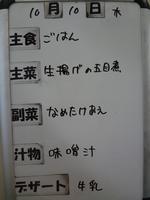 10月10日 水
主食 ごはん
主菜 生揚げの五目煮
副菜 なめたけあえ
汁物 味噌汁
デザート 牛乳